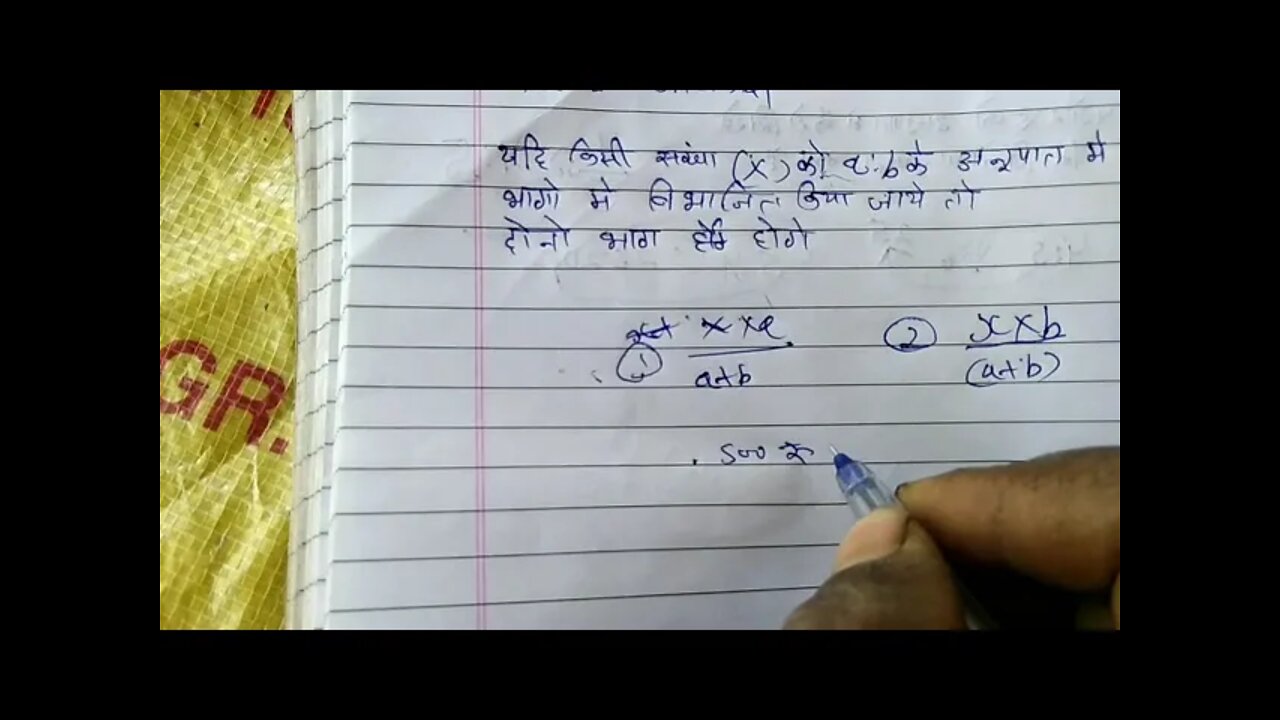 यदि किसी सख्या (x) को a:b के अनुपात मे
भागो मे विभाजित किया जाये तो
दोनो भाग होगे
① x×a / a+b ② x×b / (a+b)
500 रु
GR.